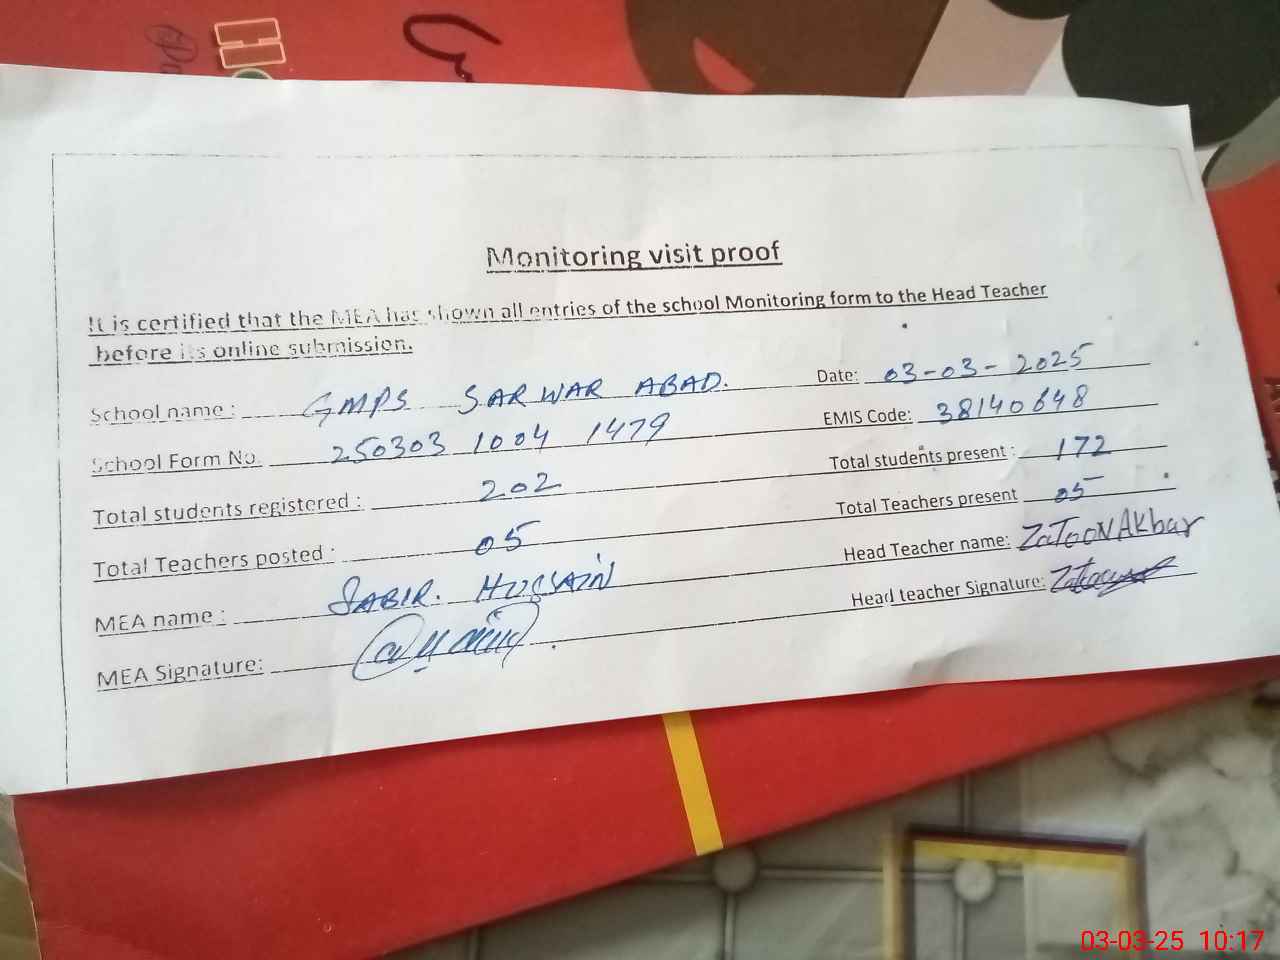 Monitoring visit proof
It is certified that the MEA has shown all entries of the school Monitoring form to the Head Teacher
before its online submission.
School name : GMPS SARWAR ABAD. Date: 03-03-2025
School Form No. 250303 1004 1479 EMIS Code: 38140648
Total students registered : 202 Total students present : 172
Total Teachers posted : 05 Total Teachers present 05
MEA name : SABIR. HUSSAIN Head Teacher name: ZaTooN Akbar
MEA Signature: Head teacher Signature:
03-03-25 10:17